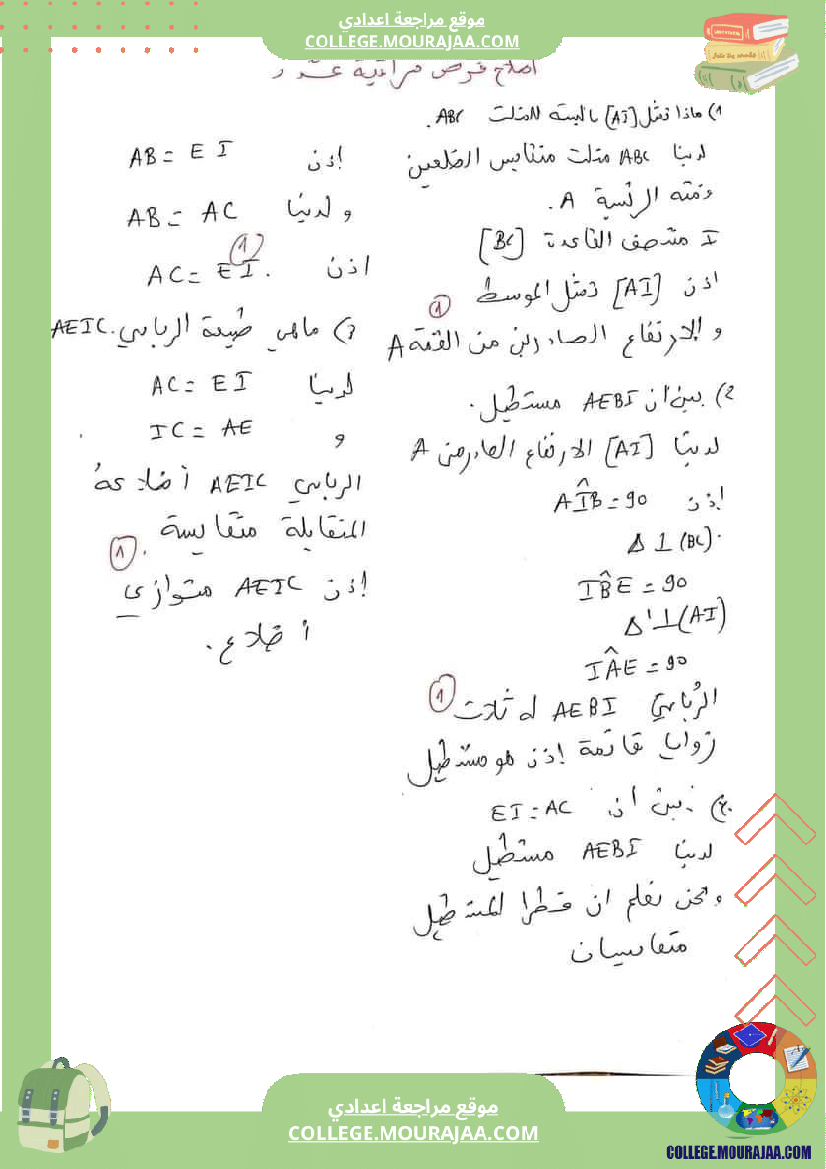 موقع مراجعة اعدادي
COLLEGE.MOURAJAA.COM
اصلاح فرض مراقبة عدد
1) ماذا تمثل [AI] بالنسبة للمثلث ABC.
لدينا ABC مثلث متقايس الضلعين
وقمته الرئسية A.
I منتصف القاعدة [BC]
اذن [AI] تمثل الموسط
1
و الارتفاع الصادرين من القمة A
2) بين أن AEBI مستطيل.
لدينا [AI] الارتفاع الصادر من A
إذن AÎB = 90
Δ ⊥ (BC).
IB̂E = 90
Δ' ⊥ (AI)
IÂE = 90
الرباعي AEBI له ثلاث
1
زوايا قائمة إذن هو مستطيل
بين أن EI = AC
لدينا AEBI مستطيل
ونحن نعلم ان قطرا المستطيل
متقايسان
إذن AB = EI
و لدينا AB = AC
1
اذن AC = EI.
3) ماهي طبيعة الرباعي AEIC.
لدينا AC = EI
و IC = AE
الرباعي AEIC أضلاعهُ
المتقابلة متقايسة.
1
إذن AEIC متوازي
أضلاع.
موقع مراجعة اعدادي
COLLEGE.MOURAJAA.COM
COLLEGE.MOURAJAA.COM